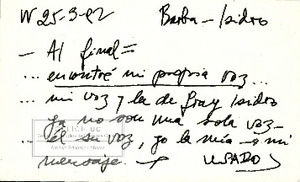 W 25-3-82 Barba - Isidro
- Al final =
... encontré mi propia voz...
... mi voz y la de fray Isidro
ya no son una sola voz -
Él su voz, yo la mía - o mi
mensaje.